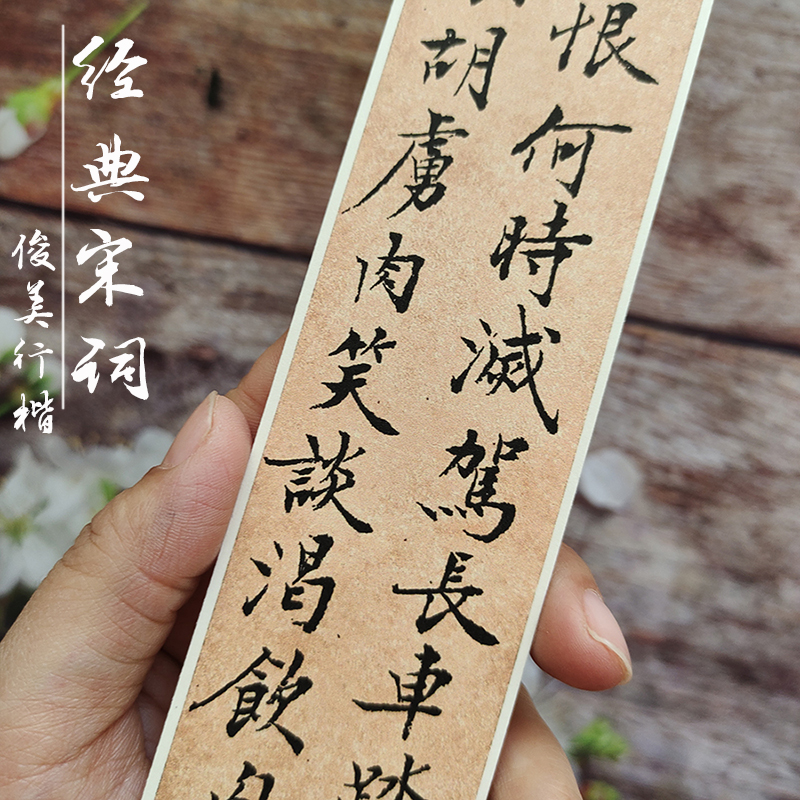 经典宋词
俊美行楷
恨何時滅駕長車踏
胡虜肉笑談渴飲匈